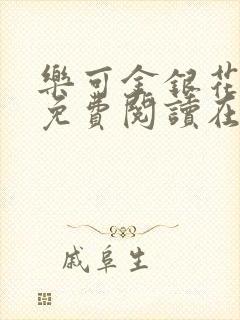 樂可金銀花
免費閱讀在
戚阜生